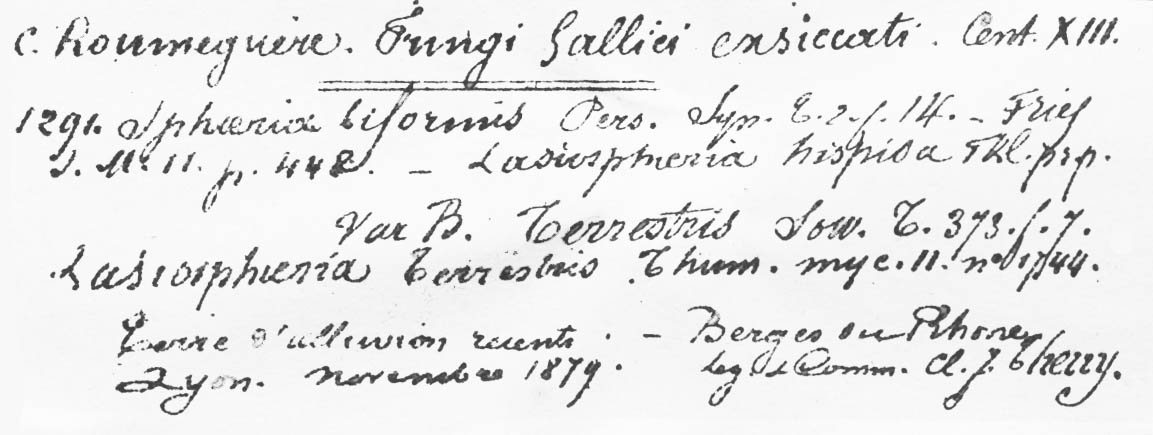 C. Roumeguère. Fungi Gallici exsiccati. Cent. XIII.
1291. Sphæria biformis Pers. Syn. t. 2. f. 14. – Fries
S. M. 11. p. 448. – Lasiosphæria hispida Fkl. p.p.
Var B. Terrestris Sow. T. 373. f. 7.
Lasiosphæria terrestris Thum. myc. 11. nº 1744.
Terre d'alluvion récents. – Berges du Rhône
Lyon. novembre 1879. Leg. & Comm. Cl. J. Therry.